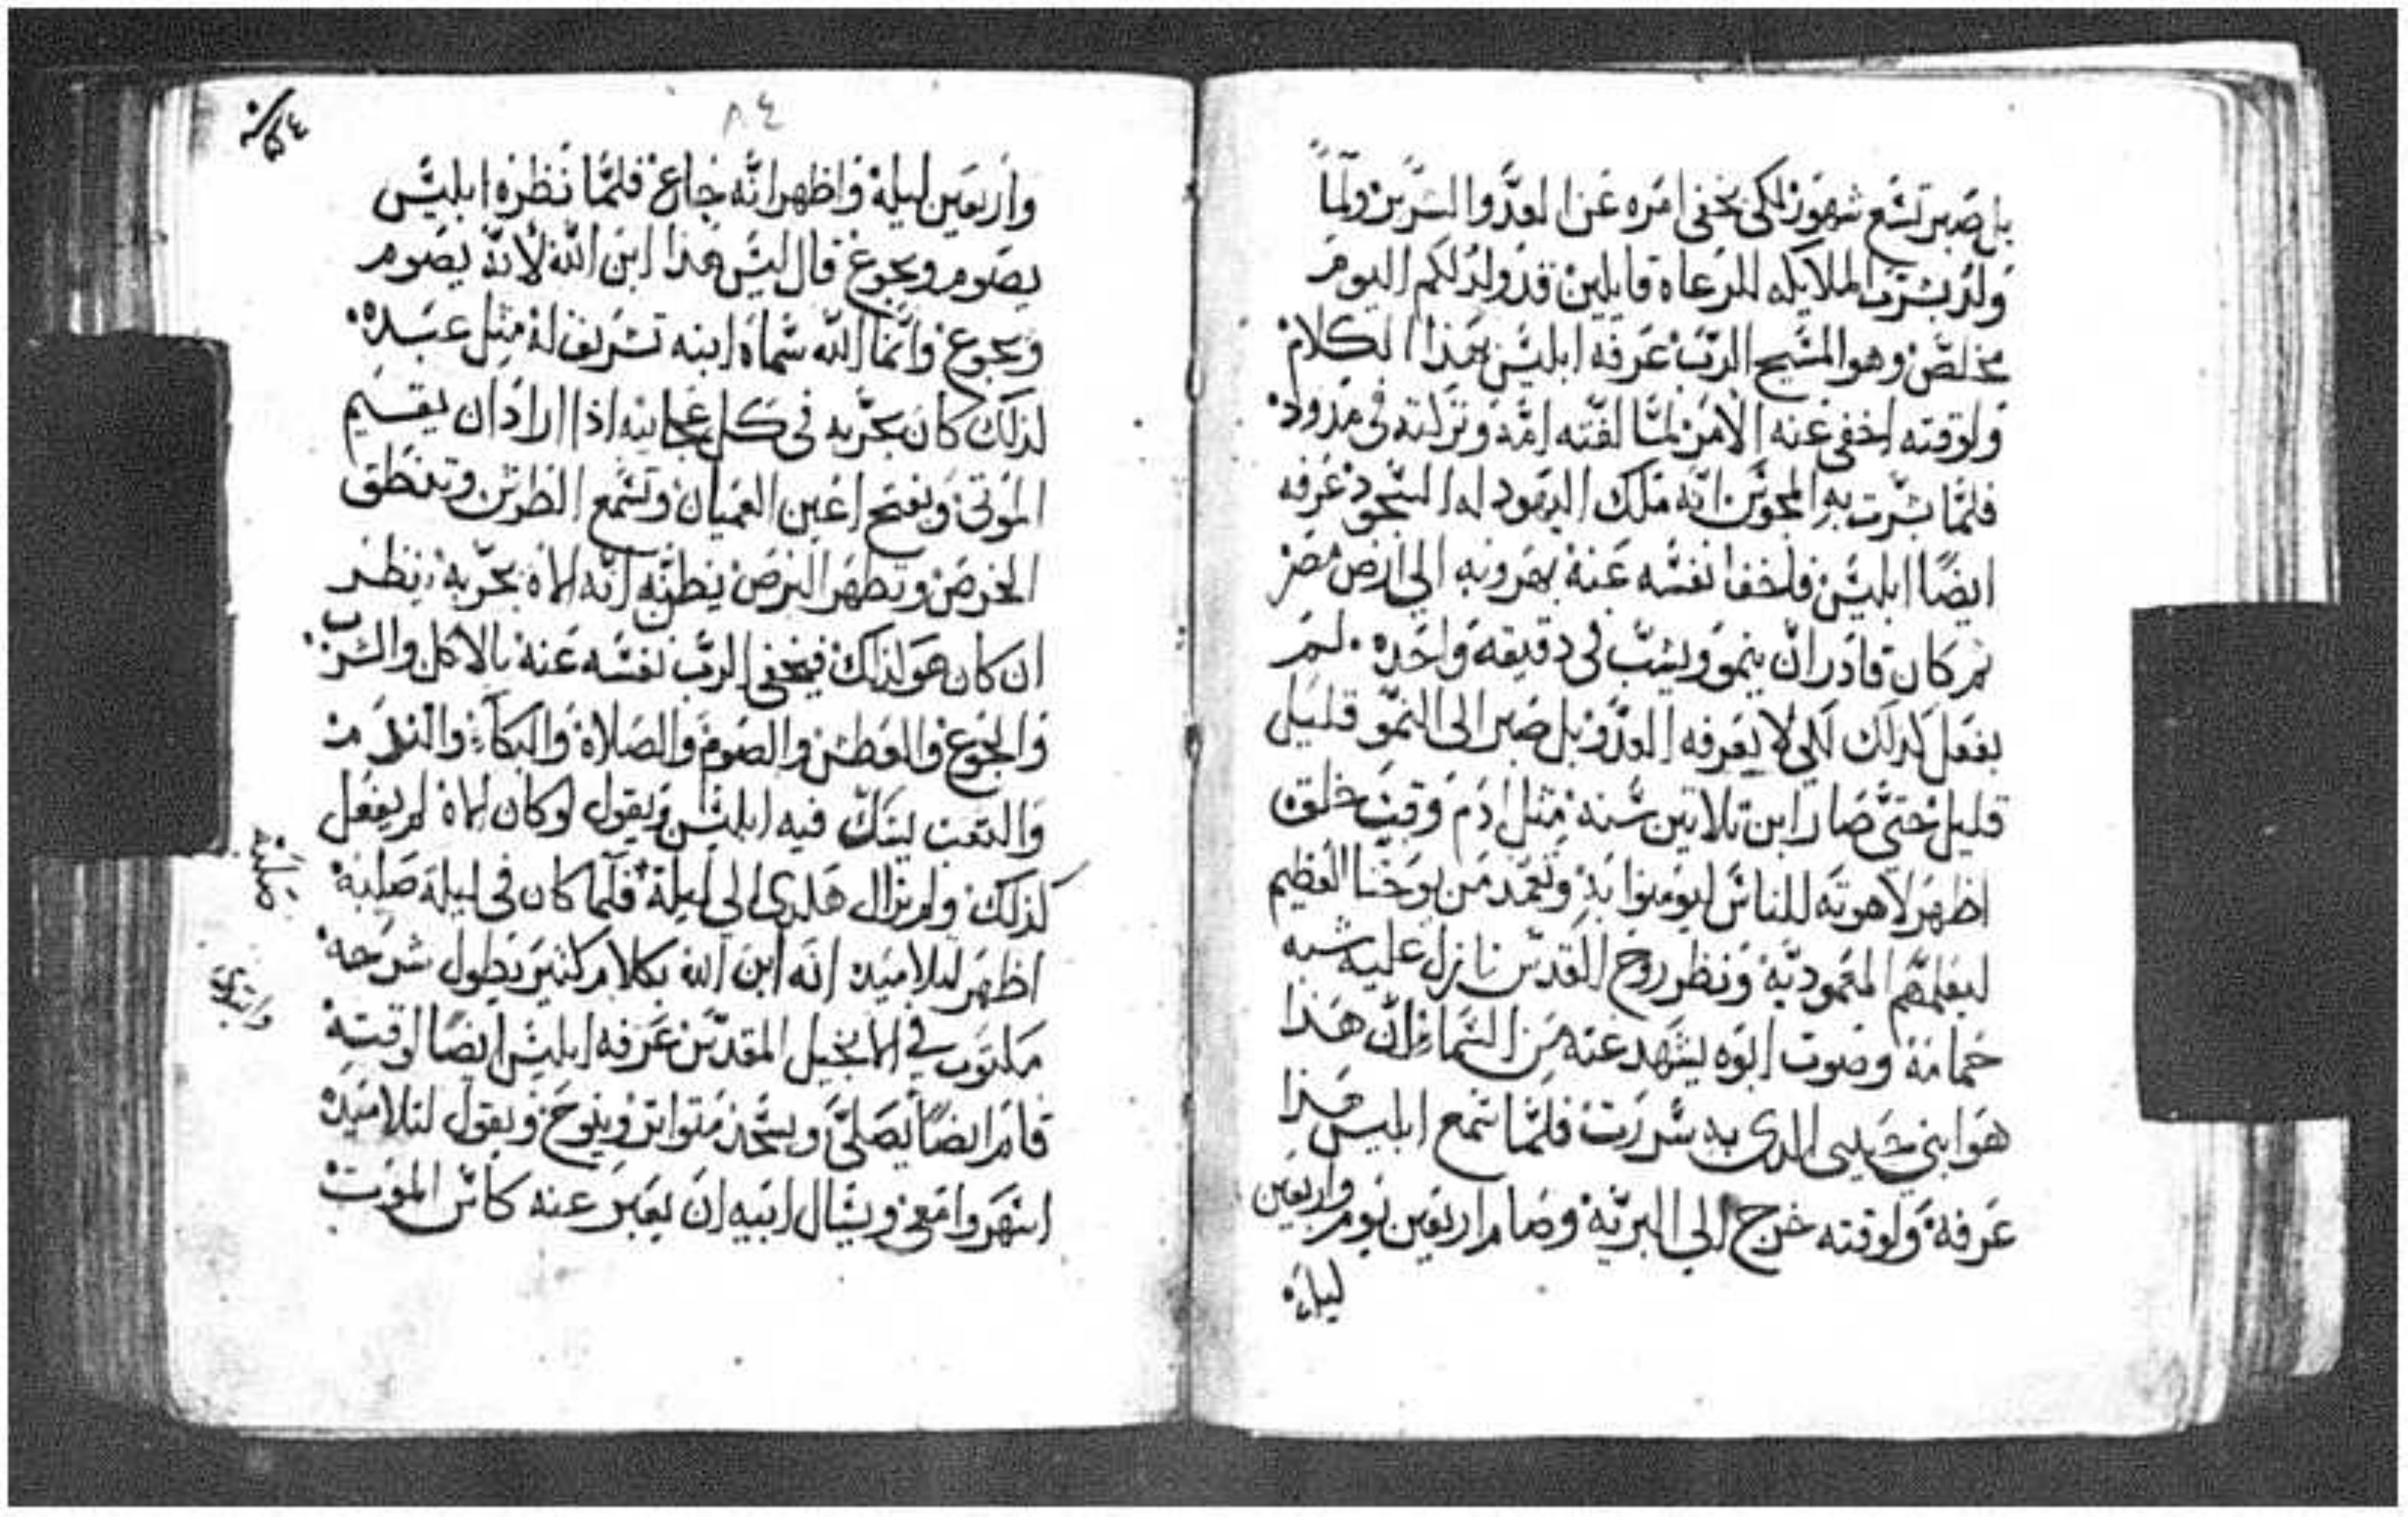 بل صبر تسع شهور لكي يخفي امره عن العدو الشرير ولما
ولد بشرت الملايكه للرعاه قايلين قد ولد لكم اليوم
مخلص وهو المسيح الرب عرفه ابليس بهذا الكلام
ولوقته اخفي عنه الامر لما لفته امه وتركته في مدود
فلما بشرت به المجوس انه ملك اليهود له السجود عرفه
ايضا ابليس فاخفا نفسه عنه بهروبه الي ارض مصر
ثم كان قادر ان ينمو ويشب في دقيقه واحده . لم
يفعل كدلك لكي لا يعرفه العدو بل صبر الى النمو قليل
قليل حتى صار ابن تلاتين سنه مثل ادم وقت خلقه
اظهر لاهوته للناس ليومنوا به وتعمد من يوحنا العظيم
ليعلمهم المعموديه ونظر روح القدس نازل عليه شبه
حمامه وصوت ابوه يشهد عنه من السماء ان هذا
هو ابني حبيبي الدي به سررت فلما سمع ابليس هذا
عرفه ولوقته خرج الي البريه وصام اربعين يوم واربعين
ليله
٨٤
واربعين ليله واظهر انه جاع فلما نظره ابليس
يصوم ويجوع قال ليس هذا ابن الله لانه يصوم
ويجوع وانما الله سماه ابنه تشريف له مثل عبيده.
لذلك كان يجربه في كل عجايبه اذا اراد ان يقيم
الموتى ويفتح اعين العميان وتسمع الطرش وتنطق
الخرص وتطهر البرص يظن به انه الاه يجربه ينظر
ان كان هو لذلك فيخفي الرب نفسه عنه بالاكل والشرب
والجوع والعطش والصوم والصلاه والبكاء والنوم
والتعب ليشك فيه ابليس ويقول لو كان الاه لم يفعل
كذلك ولم يزال هكدي الى ليلة فلما كان في ليلة صلبه
اظهر لتلاميده انه ابن الله بكلام كثير يطول شرحه
مكتوب في الانجيل المقدس عرفه ابليس ايضا لوقته
قام ايضا يصلي ويسجد متواتر وينوح ويقول لتلاميده
اسهروا معي ويسال ابيه ان يعبر عنه كاس الموت
صلبه